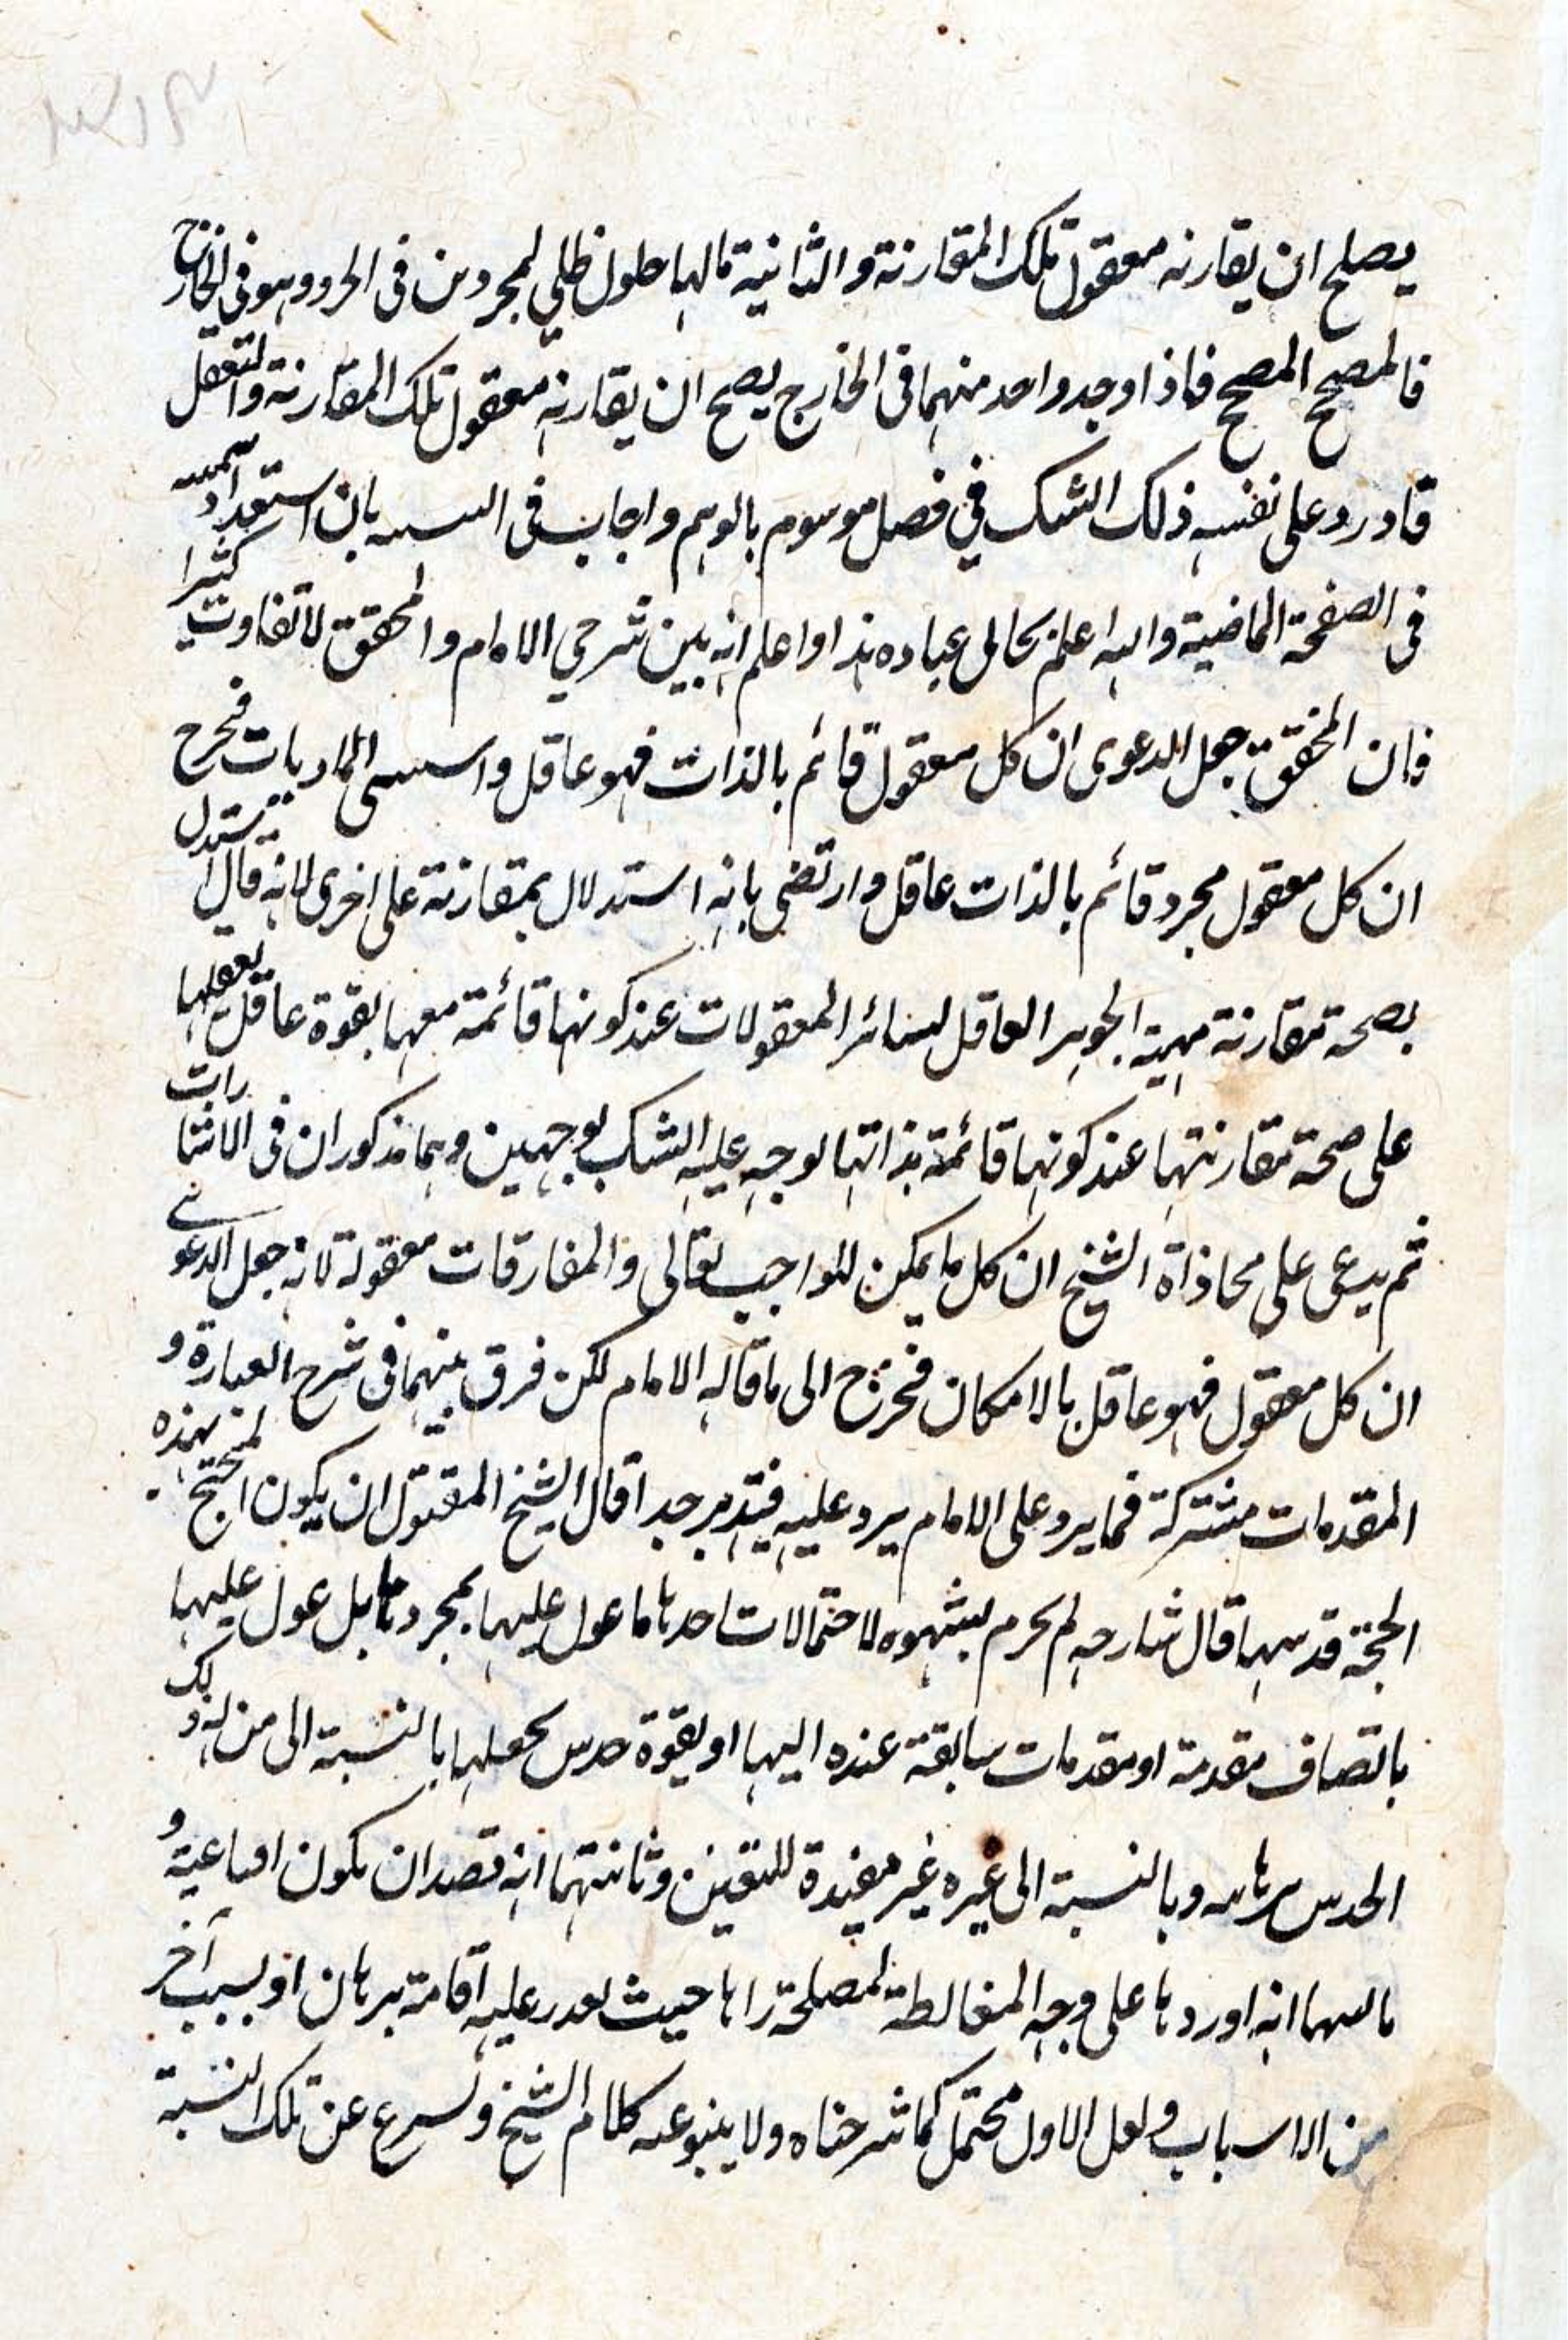 يصلح ان يقارنه معقول تلك المقارنة و الثانية مالها حلول ظلي لمجرد من فى الحر و وهو فى الخارج
فالمصحح المصحح فاذا وجد واحد منهما فى الخارج يصح ان يقارنه معقول تلك المقارنة والتعقل
فاورد على نفسه ذلك الشك في فصل موسوم بالوهم واجاب فى بان استعداد
فى الصفحة الماضية والله اعلم بحالى عباده هذا واعلم انه بين شرحي الامام والمحقق لا تفاوت كثيرا
فان المحقق جعل الدعوى ان كل معقول قائم بالذات فهو عاقل و الماديات فخرج
ان كل معقول مجرد قائم بالذات عاقل وارتضى بانه استدلال بمقارنة على اخرى لانه قال استدل
بصحة مقارنة مهية الجوهر العاقل لسائر المعقولات عند كونها قائمة معها بقوة عاقل يعقلها
على صحة مقارنتها عند كونها قائمة بذاتها لوجه عليه الشك بوجهين وهما مذكوران فى الاشارات
ثم يدعى على محاذاة الشيخ ان كل ما يمكن للواجب تعالى والمفارقات معقولة لانه جعل الدعوى
ان كل معقول فهو عاقل بالامكان فخرج الى ما قاله الامام لكن فرق بينهما فى شرح العبارة و
المقدمات مشتركة فما يرد على الامام يرد عليه فتدبر جدا قال الشيخ المقتول ان يكون المحتج بهذه
الحجة قد سها قال شارحه لم يجزم بسهوه لاحتمالات احدها ما عول عليها بمجردها بل عول عليها
بانضاف مقدمة او مقدمات سابقة عنده اليها او بقوة حدس يجعلها بالنسبة الى من له ذلك
الحدس برهانيه وبالنسبة الى غيره غير مفيدة لليقين وثانيتهما انه قصد ان يكون اقناعية و
ثالثهما انه اوردها على وجه المغالطة لمصلحة راها حيث تعذر عليه اقامة برهان او بسبب آخر
من الاسباب و لعل الاول محتمل كما شرحناه ولا ينبو عنه كلام الشيخ و عن تلك النسبة